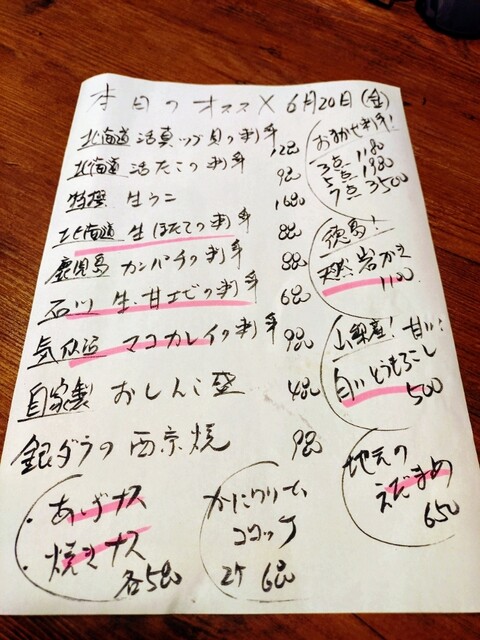 本日のオススメ 6月20日(金)
北海道 活真ツブ貝の刺身 1280
北海道 活たこの刺身 980
特撰 生ウニ 1680
北海道 生ほたての刺身 880
鹿児島 カンパチの刺身 880
石川 生・甘エビの刺身 680
気仙沼 マコカレイの刺身 980
自家製 おしんこ盛 480
銀ダラの西京焼 980
おまかせ刺身!
3点 1180
5点 1980
7点 3500
徳島!
天然岩かき
1100
山梨産! 甘い!
白いとうもろこし
500
地元の
えだまめ
650
・あげナス
・焼きナス
各580
かにクリーム
コロッケ
2ケ 680